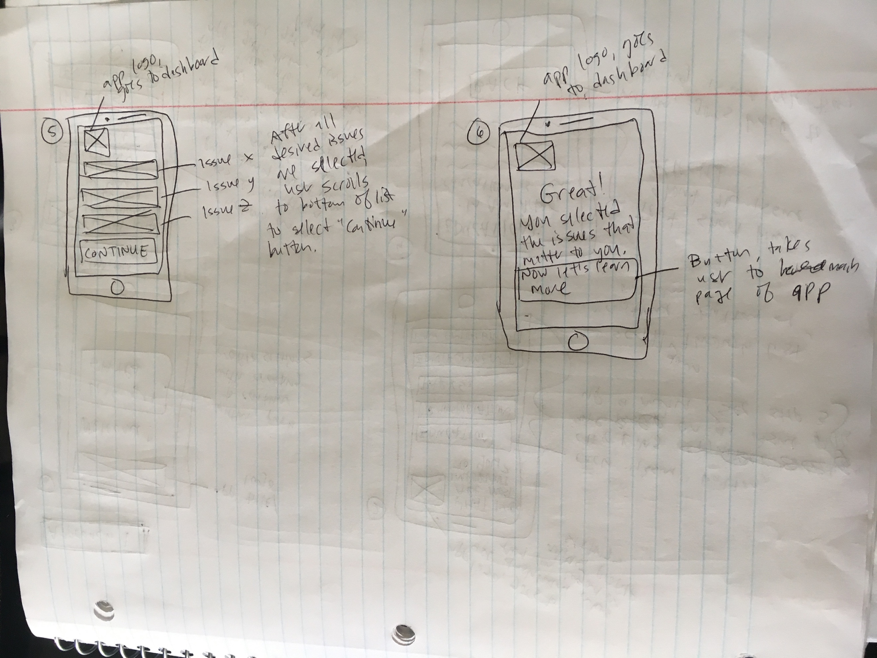 5
app logo,
goes to dashboard
Issue x
Issue y
Issue z
CONTINUE
After all
desired issues
are selected
user scrolls
to bottom of list
to select "Continue"
button.
6
app logo, goes
to dashboard
Great!
You selected
the issues that
matter to you.
Now let's learn
more
Button, takes
user to
page of app